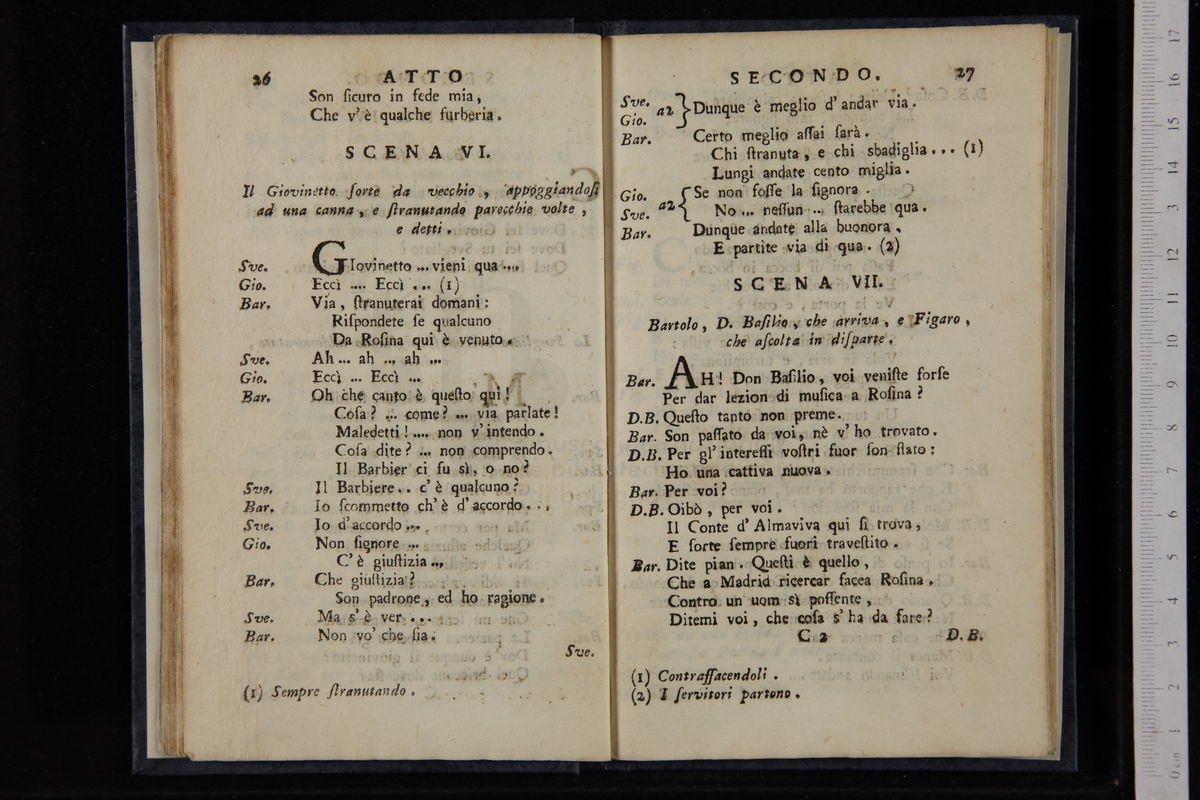 26 ATTO
Son ſicuro in fede mia,
Che v' è qualche furberia.
SCENA VI.
Il Giovinetto ſorte da vecchio, appoggiandoſi
ad una canna, e ſtranutando parecchie volte,
e detti.
Sve. GIovinetto ... vieni qua ....
Gio. Eccì .... Eccì ... (1)
Bar. Via, ſtranuterai domani:
Riſpondete ſe qualcuno
Da Roſina qui è venuto.
Sve. Ah ... ah ... ah ...
Gio. Eccì ... Eccì ...
Bar. Oh che canto è queſto qui!
Coſa? ... come? ... via parlate!
Maledetti! .... non v' intendo.
Coſa dite? ... non comprendo.
Il Barbier ci fu sì, o no?
Sve. Il Barbiere .. c' è qualcuno?
Bar. Io ſcommetto ch' è d' accordo...
Sve. Io d' accordo ...
Gio. Non ſignore ...
C' è giuſtizia ...
Bar. Che giuſtizia?
Son padrone, ed ho ragione.
Sve. Ma s' è ver ...
Bar. Non vo' che ſia.
Sve.
(1) Sempre ſtranutando.
SECONDO. 27
Sve.
Gio. a2 } Dunque è meglio d' andar via.
Bar. Certo meglio aſſai ſarà.
Chi ſtranuta, e chi sbadiglia... (1)
Lungi andate cento miglia.
Gio. a2 { Se non foſſe la ſignora.
Sve. No ... neſſun ... ſtarebbe qua.
Bar. Dunque andate alla buonora,
E partite via di qua. (2)
SCENA VII.
Bartolo, D. Baſilio, che arriva, e Figaro,
che aſcolta in diſparte.
Bar. AH! Don Baſilio, voi veniſte forſe
Per dar lezion di muſica a Roſina?
D.B. Queſto tanto non preme.
Bar. Son paſſato da voi, nè v' ho trovato.
D.B. Per gl' intereſſi voſtri fuor ſon ſtato:
Ho una cattiva nuova.
Bar. Per voi?
D.B. Oibò, per voi.
Il Conte d' Almaviva qui ſi trova,
E ſorte ſempre fuori traveſtito.
Bar. Dite pian. Queſti è quello,
Che a Madrid ricercar facea Roſina.
Contro un uom sì poſſente,
Ditemi voi, che coſa s' ha da fare?
C 2 D. B.
(1) Contraffacendoli.
(2) I ſervitori partono.
0 cm 1 2 3 4 5 6 7 8 9 10 11 12 13 14 15 16 17